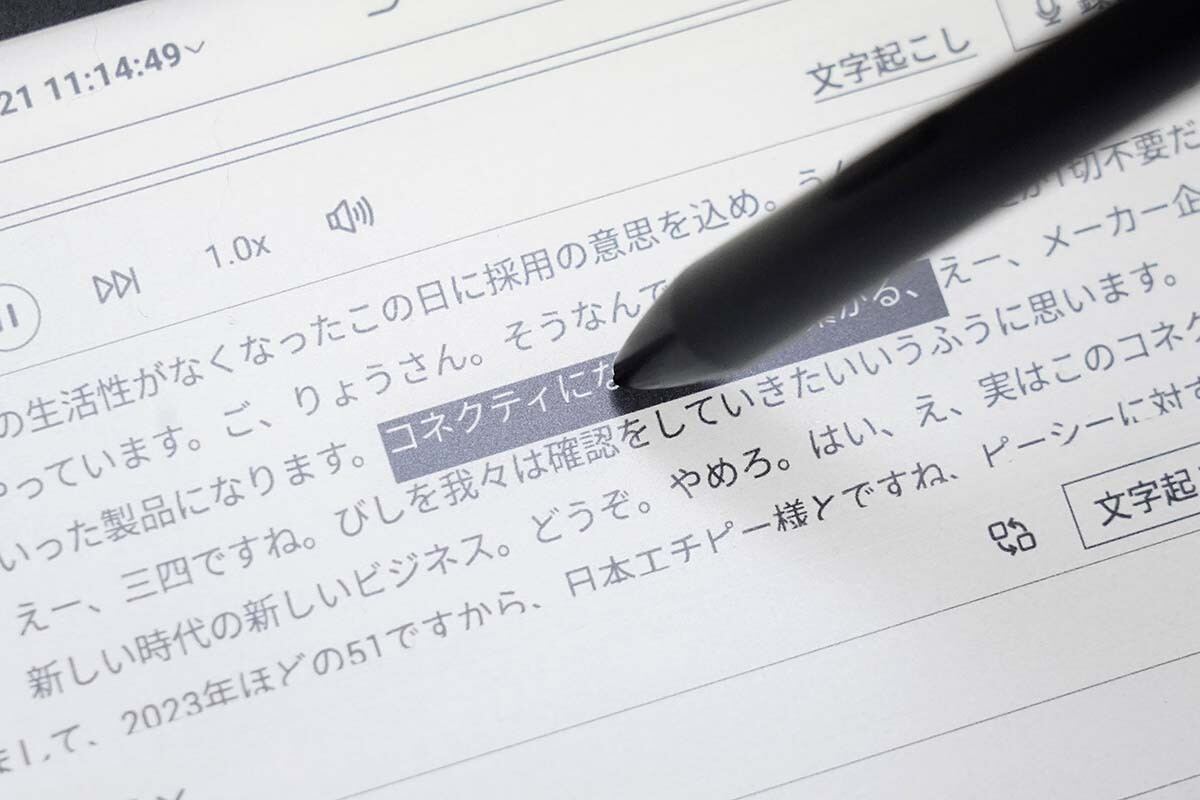 21 11:14:49
文字起こし
1.0x
の生活性がなくなったこの日に採用の意思を込め。う 切不要だ
やっています。ご、りょうさん。そうなんで メーカー企
いった製品になります。コネクティにな かる、えー、
えー、三四ですね。びしを我々は確認をしていきたいいうふうに思います。
新しい時代の新しいビジネス。どうぞ。やめろ。はい、え、実はこのコネク
まして、2023年ほどの51ですから、日本エチピー様とですね、ピーシーに対す
文字起